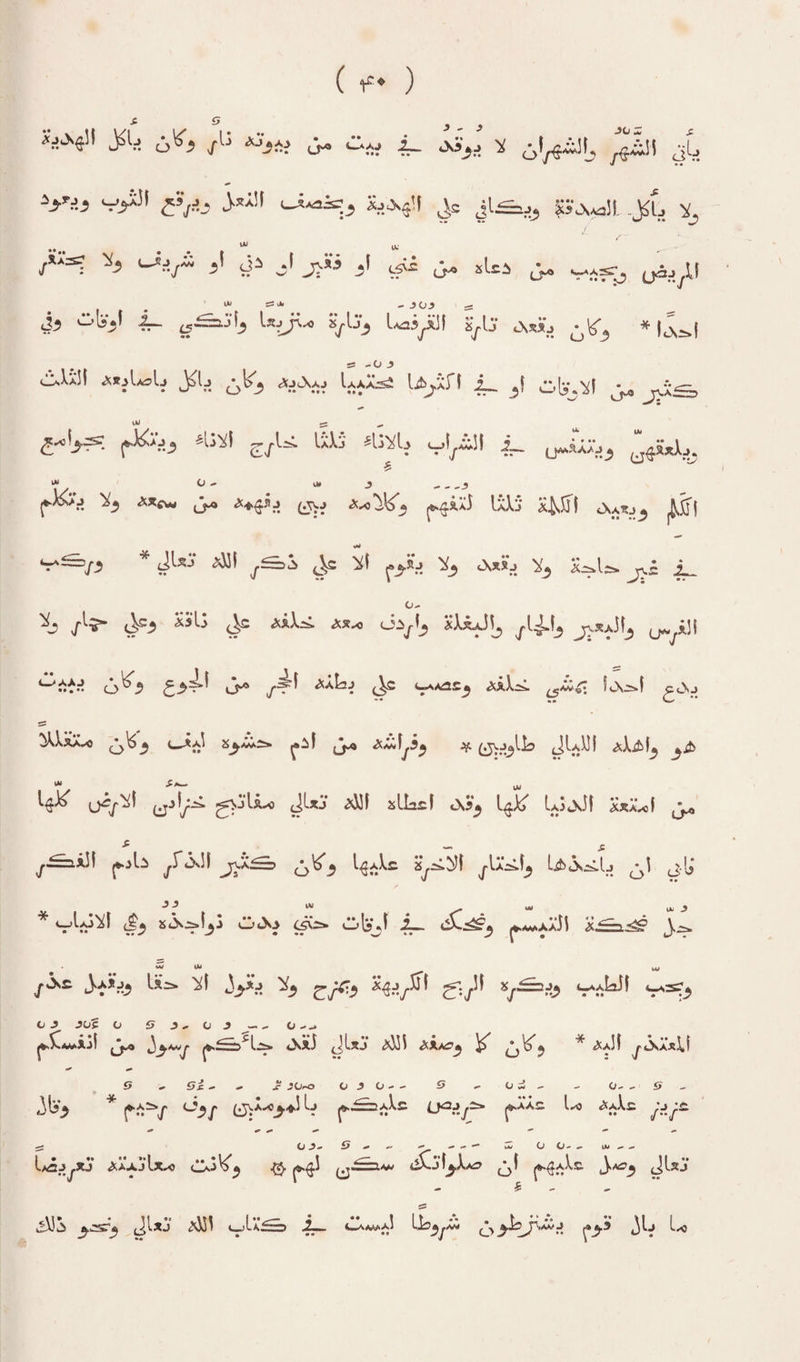 ( ۴۰ )
ياتي الشهر والشهران لا يوقد في بيت من بيوته نار وكان ياكل الهدية
ولا ياكل الصدقة ويكافي علي الهدية ويخصف النعل ويرقع الثوب ويعود
المريض ويجيب من دعاه من غني او فقير او دني او شريف ولا يحتقر
احدا * وكان يقعد تارة القرفصا وتارة متربعا واتكي في اوقات وفي
كثير من الاوقات او في اكثرها محتبيا بيديه وكان ياكل باصابعه الثلث
ويلعقهن ويتنفس في الشراب بالاناء ثلثا خارج الاناء ويتكلم بجوامع
الكلم ويعيد الكلمة ثلثا لتفهم وكلامه بين يفهمه من سمعه ولا يتكلم
في غير حاجة ولا يقعد ولا يقوم الا علي ذكر الله تعالي * وركب
الفرس والبعير والحمار والبغلة واردف معه خلفه علي ناقة وعلي حمار ولا
يدع احدا يمشي خلفه وعصب علي بطنه الحجر من الجوع وكان يبيت
هو واهله الليالي طاويين * وفراشه من ادم حشوه ليف وكان متقللا
من امتعة الدنيا كلها وقد اعطاه الله تعالي مفاتيح خزاين الارض كلها
فابي ان ياخذها واختار الاخرة عليها وكان كثير الذكر دايم الفكر
جل ضحكه التبسم وضحك في اوقات حتي بدت نواجذه وهي الانياب *
ويحب الطيب ويكره الريح الكريهة ويمزح ولا يقول الا حقا ويقبل عذر
المعتذر اليه * وكان كما وصفه الله تعالي لقد جاءكم رسول من انفسكم
عزيز عليه ما عنتم حريص عليكم بالمومنين روف رحيم * وقال
تعالي وصل عليهم ان صلواتك سكن لهم * وكانت معاتبته تعريضا
ما بال قوم يشترطون شروطا ليست في كتاب الله تعالي ونحو ذلك